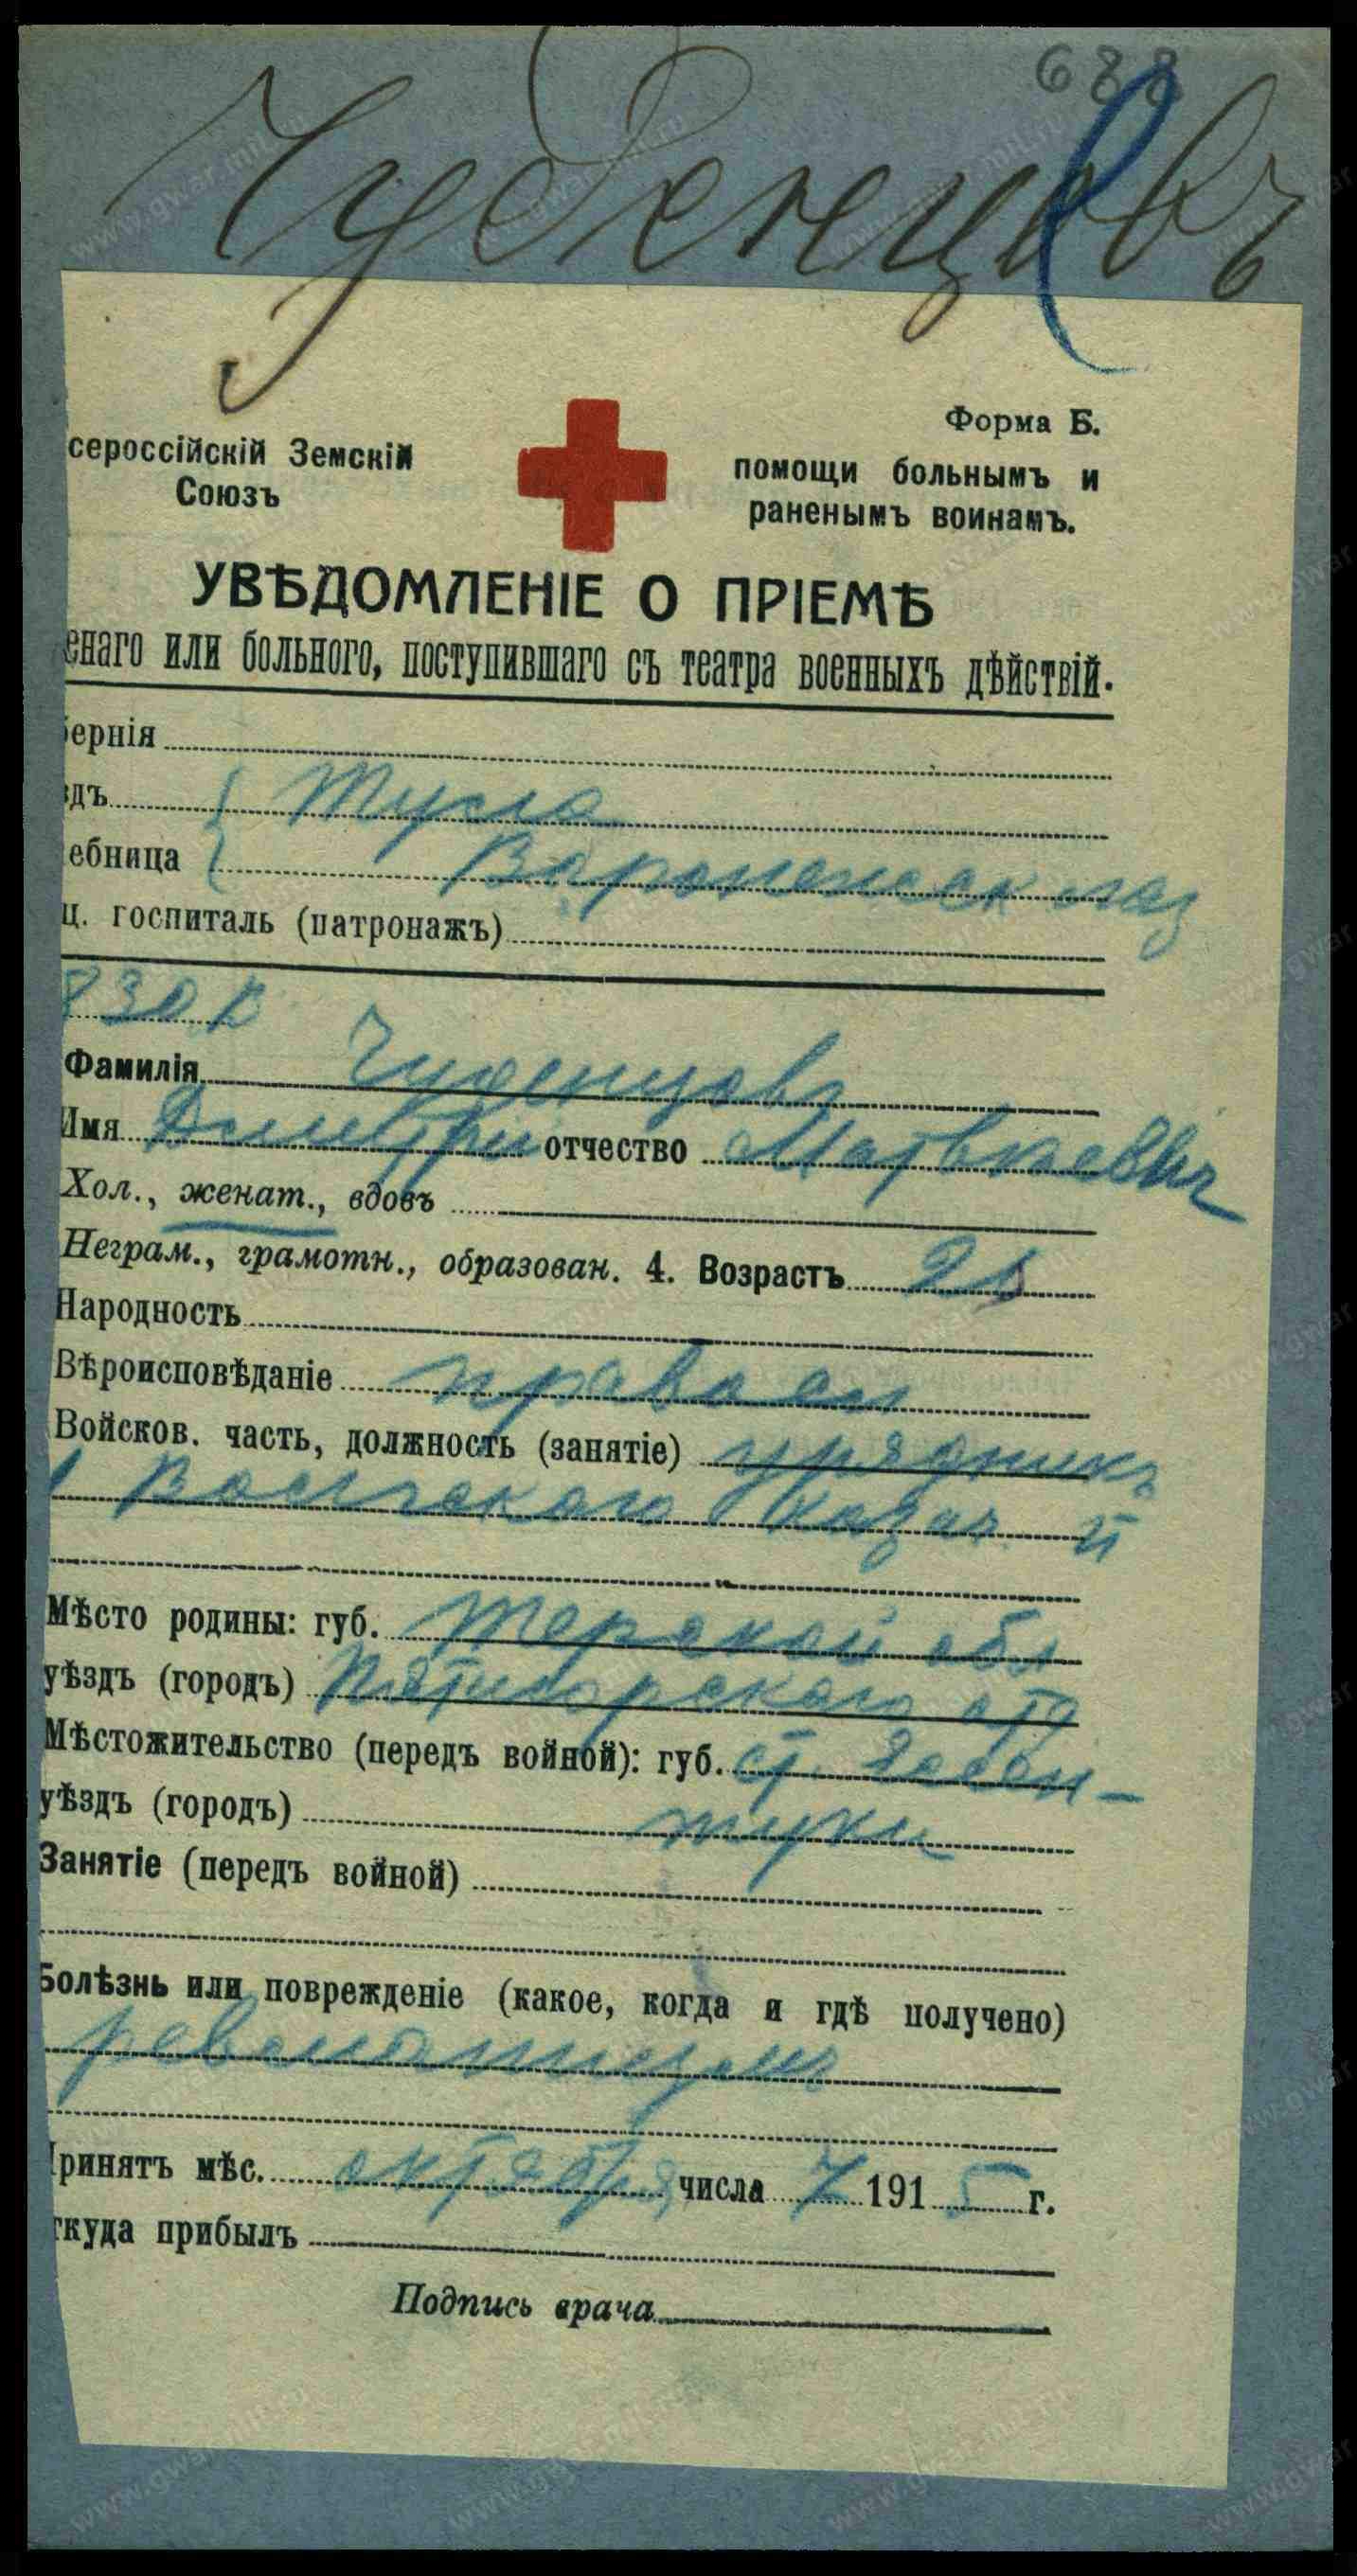 688
Чуденцовъ
Форма Б.
сероссійскій Земскій
Союзъ
помощи больнымъ и
раненымъ воинамъ.
УВѢДОМЛЕНІЕ О ПРІЕМѢ
енаго или больного, поступившаго съ театра военныхъ дѣйствій.
ернія
здъ Тула
ебница Воронежск лаз
ц. госпиталь (патронажъ)
Фамилія Чуденцовъ
Имя Дмитри отчество Матвѣевич
Хол., женат., вдовъ
Неграм., грамотн., образован. 4. Возрастъ
Народность
Вѣроисповѣданіе правосл
Войсков. часть, должность (занятіе) урядникъ
1 Волгскаго казач. п
Мѣсто родины: губ. Терской обл
уѣздъ (городъ) Пятигорскаго отд
Мѣстожительство (передъ войной): губ. ст. Эссен-
уѣздъ (городъ) туки
Занятіе (передъ войной)
Болѣзнь или поврежденіе (какое, когда и гдѣ получено)
ревматизмъ
Принятъ мѣс. октября числа 7 1915 г.
ткуда прибылъ
Подпись врача